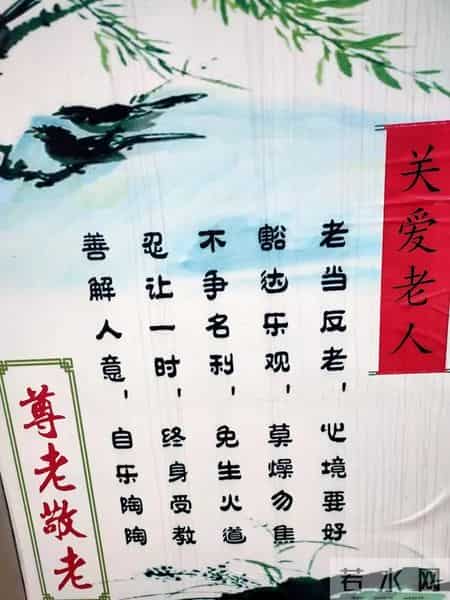 关爱老人
老当反老，心境要好
豁达乐观，莫燥勿焦
不争名利，免生火道
忍让一时，终身受教
善解人意，自乐陶陶
尊老敬老
若水网